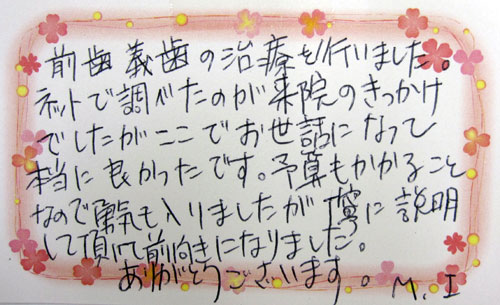 前歯義歯の治療を行いました。
ネットで調べたのが来院のきっかけ
でしたがここでお世話になって
本当に良かったです。予算もかかること
なので勇気も入りましたが丁寧に説明
して頂いて前向きになりました。
ありがとうございます。M.I